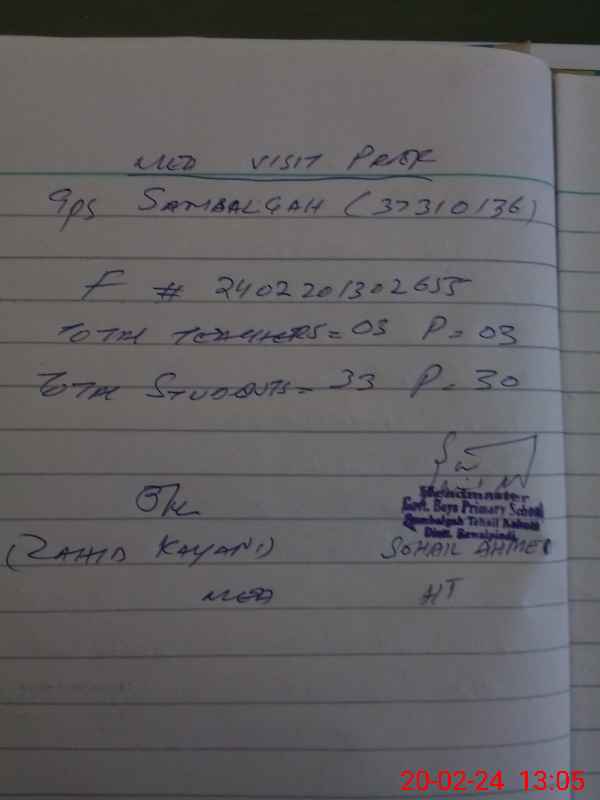 MEA VISIT PROOF
Gps SAMBALGAH (37310136)
F # 2402201302655
TOTAL TEACHERS = 03 P = 03
TOTAL STUDENTS = 33 P = 30
Headmaster
Govt. Boys Primary School
Sambalgah Tehsil Kahuta
Distt. Rawalpindi
(ZAHID KAYANI)
SOHAIL AHMED
MEA
HT
20-02-24 13:05